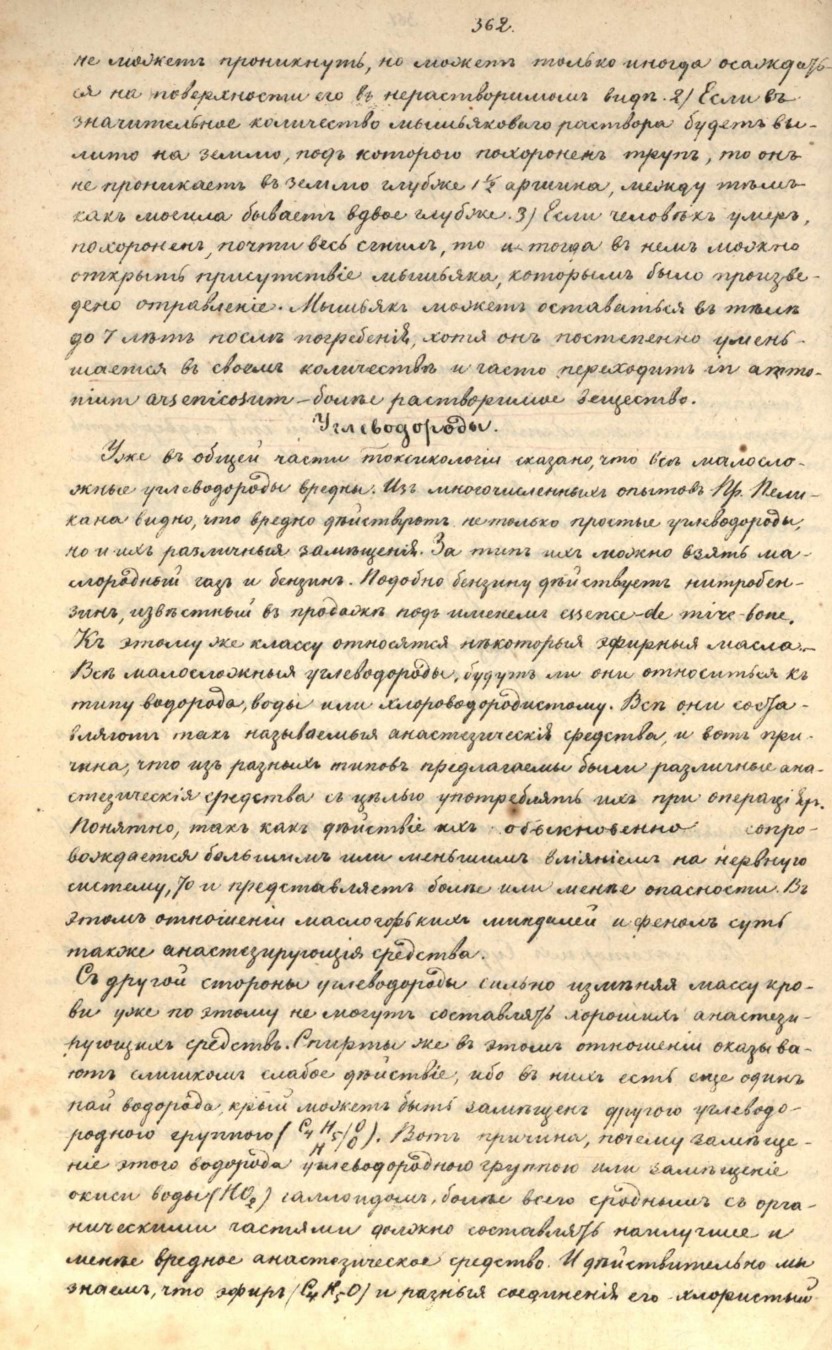 362.
не можетъ проникнуть, но можетъ только иногда осаждать-
ся на поверхности его въ нерастворимомъ видѣ. 2) Если въ
значительное количество мышьяковаго раствора будетъ вы-
лито на землю, подъ которого похороненъ трупъ, то онъ
не проникаетъ въ землю глубже 1½ аршина, между тѣмъ
какъ могила бываетъ вдвое глубже. 3) Если человѣкъ умеръ,
похороненъ, почти весь сгнилъ, то и тогда въ немъ можно
открыть присутствіе мышьяка, которымъ было произве-
дено отравленіе. Мышьякъ можетъ оставаться въ тѣлѣ
до 7 лѣтъ послѣ погребенія, хотя онъ постепенно умень-
шается въ своемъ количествѣ и часто переходитъ in ammo-
nium arsenicosum – болѣе растворимое вещество.
Углеводороды.
Уже въ общей части токсикологіи сказано, что всѣ малосло-
жные углеводороды вредны. Изъ многочисленныхъ опытовъ Пр. Пели-
кана видно, что вредно дѣйствуютъ не только простые углеводороды,
но и ихъ различныя замѣщенія. За типъ ихъ можно взять ма-
слородный газъ и бензинъ. Подобно бензину дѣйствуетъ нитробен-
зинъ, извѣстный въ продажѣ подъ именемъ essence de mirc-bone.
Къ этому же классу относятся нѣкоторыя эфирныя масла.–
Всѣ малосложныя углеводороды, будутъ ли они относиться къ
типу водорода, воды или хлороводородистому. Всѣ они соста-
вляютъ такъ называемыя анастезическія средства, и вотъ при-
чина, что изъ разныхъ типовъ предлагаемы были различные ана-
стезическія средства съ цѣлью употреблять ихъ при
Понятно, такъ какъ дѣйствіе ихъ обыкновенно сопро-
вождается большимъ или меньшимъ вліяніемъ на нервную
систему, то и представляетъ болѣе или менѣе опасности. Въ
этомъ отношеніи масло горькихъ миндалей и фенолъ суть
также анастезирующія средства.
Съ другой стороны углеводороды сильно измѣняя массу кро-
ви уже по этому не могутъ составлять хорошихъ анастези-
рующихъ средствъ. Спирты же въ этомъ отношеніи оказыва-
ютъ слишкомъ слабое дѣйствіе, ибо въ нихъ есть еще одинъ
пай водорода, крый можетъ быть замѣщенъ другою углеводо-
родного группою (C₄H₅/H O/O). Вотъ причина, почему замѣще-
ніе этого водорода углеводородною группою или замѣщеніе
окиси воды (HO₂) галлоидомъ, болѣе всего сроднымъ съ орга-
ническими частями должно составлять наилучшее и
менѣе вредное анастезическое средство. И дѣйствительно мы
знаемъ, что эфиръ (C₄H₅O) и разныя соединенія его хлористый